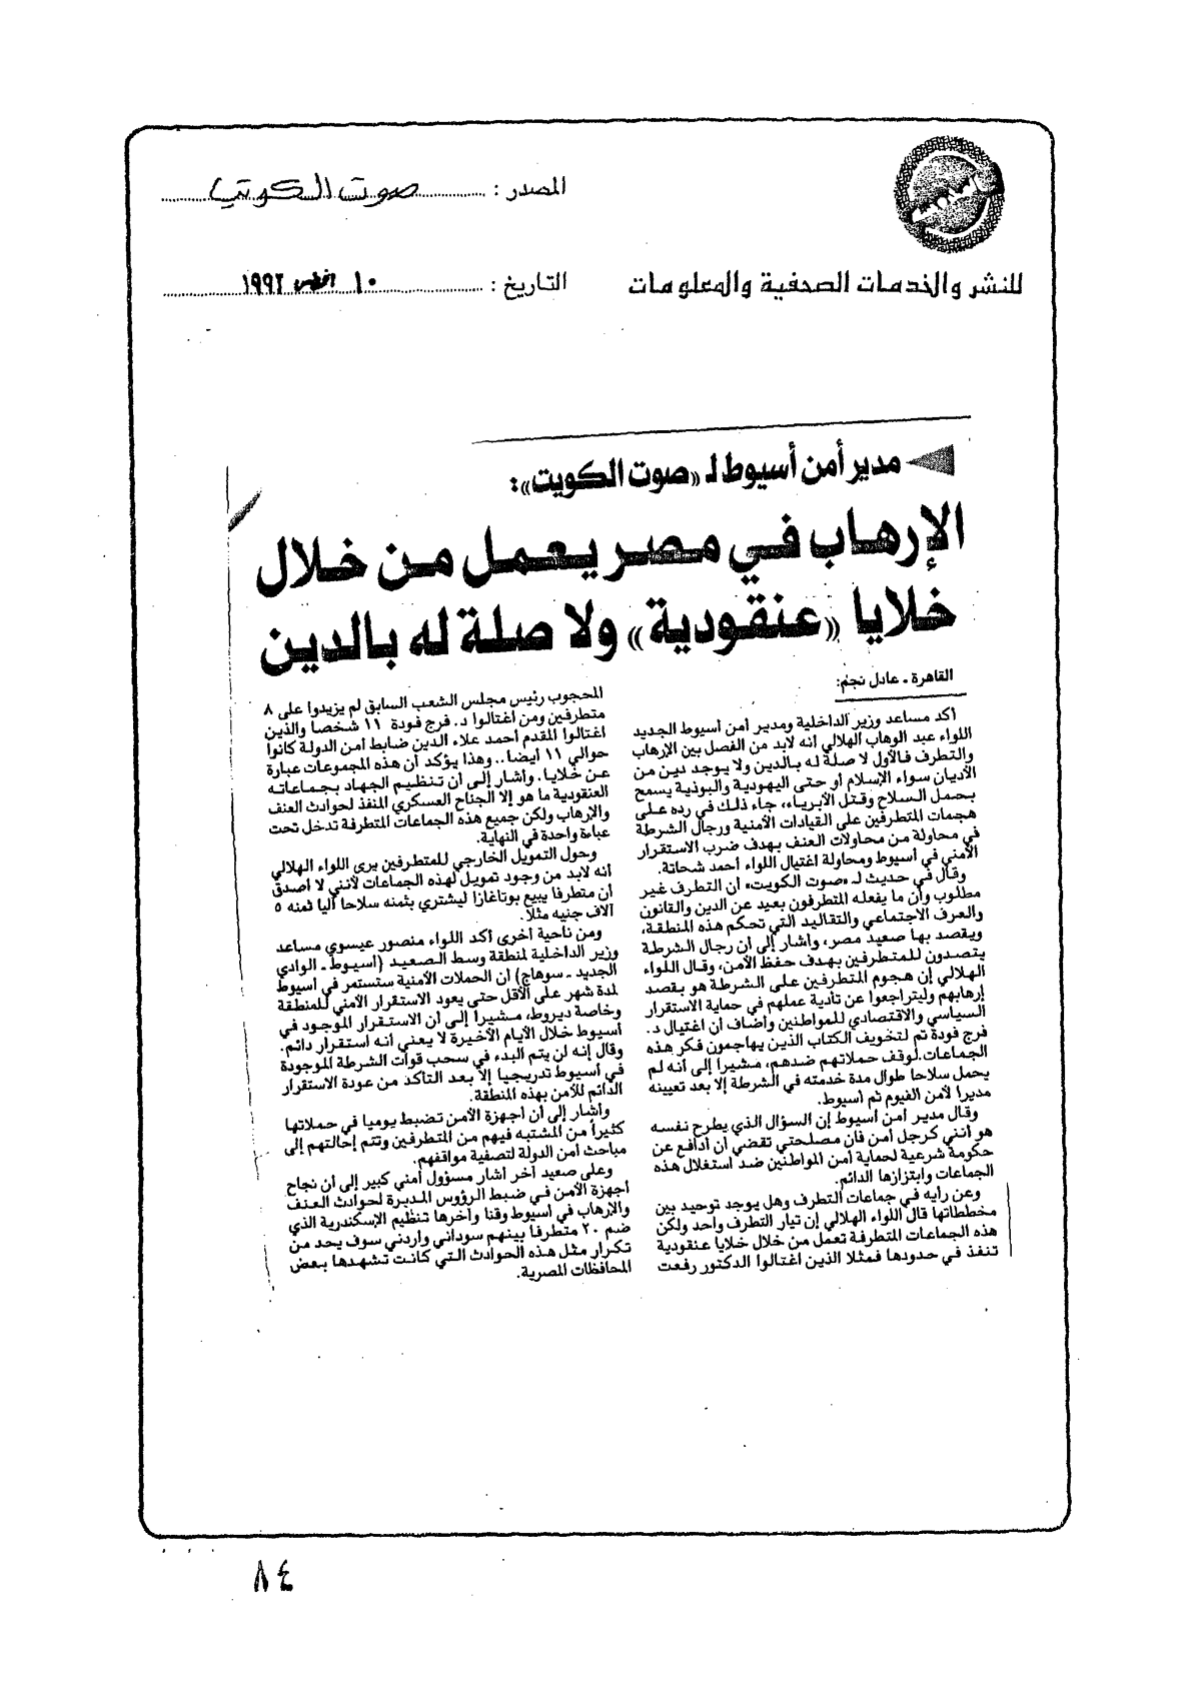 المصدر : صوت الكويت
للنشر والخدمات الصحفية والمعلومات
التاريخ : ١٠ اغسطس ١٩٩٢
مدير أمن أسيوط لـ «صوت الكويت»:
الإرهاب في مصر يعمل من خلال
خلايا «عنقودية» ولا صلة له بالدين
القاهرة ـ عادل نجم:
أكد مساعد وزير الداخلية ومدير أمن أسيوط الجديد
اللواء عبد الوهاب الهلالي أنه لابد من الفصل بين الإرهاب
والتطرف فالأول لا صلة له بالدين ولا يوجد دين من
الأديان سواء الإسلام أو حتى اليهودية والبوذية يسمح
بحمل السلاح وقتل الأبرياء، جاء ذلك في رده على
هجمات المتطرفين على القيادات الأمنية ورجال الشرطة
في محاولة من محاولات العنف بهدف ضرب الاستقرار
الأمني في أسيوط ومحاولة اغتيال اللواء أحمد شحاتة.
وقال في حديث لـ «صوت الكويت» أن التطرف غير
مطلوب وأن ما يفعله المتطرفون بعيد عن الدين والقانون
والعرف الاجتماعي والتقاليد التي تحكم هذه المنطقة،
ويقصد بها صعيد مصر، وأشار إلى أن رجال الشرطة
يتصدون للمتطرفين بهدف حفظ الأمن، وقال اللواء
الهلالي إن هجوم المتطرفين على الشرطة هو بقصد
إرهابهم وليتراجعوا عن تأدية عملهم في حماية الاستقرار
السياسي والاقتصادي للمواطنين وأضاف أن اغتيال د.
فرج فودة تم لتخويف الكتاب الذين يهاجمون فكر هذه
الجماعات لوقف حملاتهم ضدهم، مشيرا إلى أنه لم
يحمل سلاحا طوال مدة خدمته في الشرطة إلا بعد تعيينه
مديرا لأمن الفيوم ثم أسيوط.
وقال مدير أمن أسيوط إن السؤال الذي يطرح نفسه
هو أنني كرجل أمن فان مصلحتي تقضي أن أدافع عن
حكومة شرعية لحماية أمن المواطنين ضد استغلال هذه
الجماعات وابتزازها الدائم.
وعن رأيه في جماعات التطرف وهل يوجد توحيد بين
مخططاتها قال اللواء الهلالي إن تيار التطرف واحد ولكن
هذه الجماعات المتطرفة تعمل من خلال خلايا عنقودية
تنفذ في حدودها فمثلا الذين اغتالوا الدكتور رفعت
المحجوب رئيس مجلس الشعب السابق لم يزيدوا على ٨
متطرفين ومن اغتالوا د. فرج فودة ١١ شخصا والذين
اغتالوا المقدم أحمد علاء الدين ضابط أمن الدولة كانوا
حوالي ١١ أيضا.. وهذا يؤكد أن هذه المجموعات عبارة
عن خلايا. وأشار إلى أن تنظيم الجهاد بجماعاته
العنقودية ما هو إلا الجناح العسكري المنفذ لحوادث العنف
والإرهاب ولكن جميع هذه الجماعات المتطرفة تدخل تحت
عباءة واحدة في النهاية.
وحول التمويل الخارجي للمتطرفين يرى اللواء الهلالي
أنه لابد من وجود تمويل لهذه الجماعات لأنني لا أصدق
أن متطرفا يبيع بوتاغازا ليشتري بثمنه سلاحا آليا ثمنه ٥
آلاف جنيه مثلا.
ومن ناحية أخرى أكد اللواء منصور عيسوي مساعد
وزير الداخلية لمنطقة وسط الصعيد (أسيوط ـ الوادي
الجديد ـ سوهاج) أن الحملات الأمنية ستستمر في أسيوط
لمدة شهر على الأقل حتى يعود الاستقرار الأمني للمنطقة
وخاصة ديروط، مشيرا إلى أن الاستقرار الموجود في
أسيوط خلال الأيام الأخيرة لا يعني أنه استقرار دائم.
وقال إنه لن يتم البدء في سحب قوات الشرطة الموجودة
في أسيوط تدريجيا إلا بعد التأكد من عودة الاستقرار
الدائم للأمن بهذه المنطقة.
وأشار إلى أن أجهزة الأمن تضبط يوميا في حملاتها
كثيرا من المشتبه فيهم من المتطرفين وتتم إحالتهم إلى
مباحث أمن الدولة لتصفية مواقفهم.
وعلى صعيد آخر أشار مسؤول أمني كبير إلى أن نجاح
أجهزة الأمن في ضبط الرؤوس المدبرة لحوادث العنف
والإرهاب في أسيوط وقنا وآخرها تنظيم الإسكندرية الذي
ضم ٢٠ متطرفا بينهم سوداني وأردني سوف يحد من
تكرار مثل هذه الحوادث التي كانت تشهدها بعض
المحافظات المصرية.
٨٤